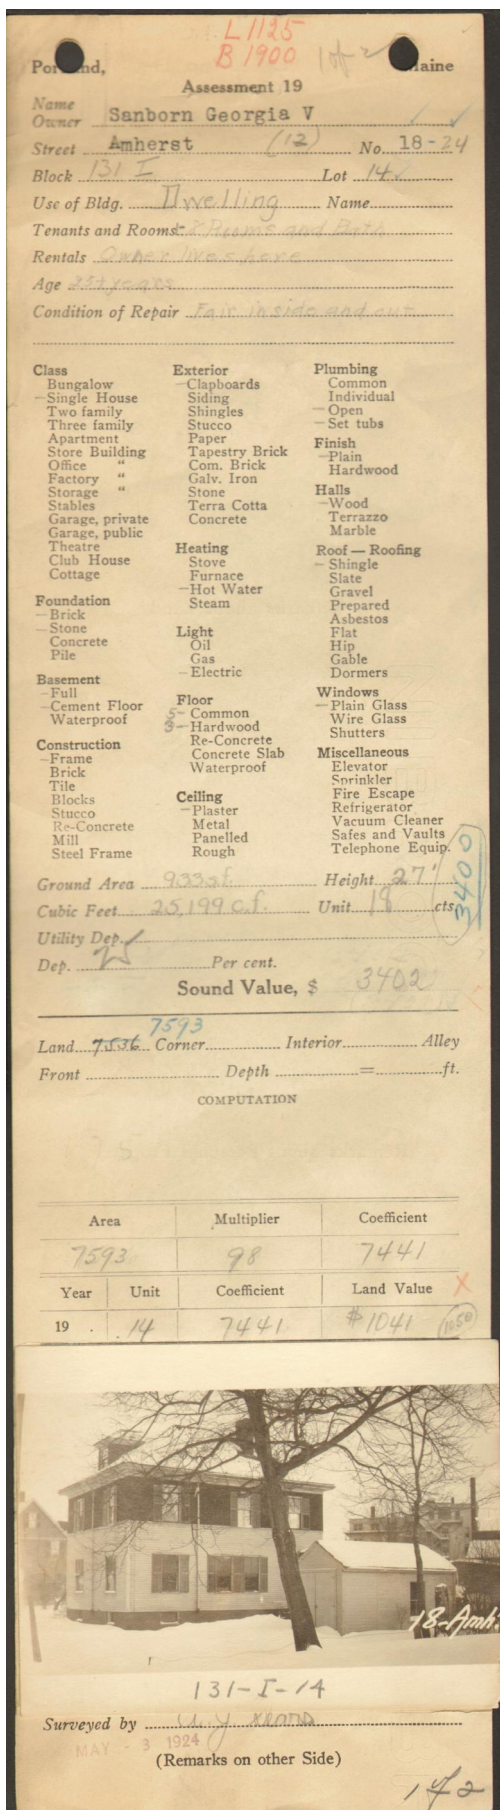 L 1125
B 1900 1 of 2
Portland, Maine
Assessment 19
Name
Owner Sanborn Georgia V
Street Amherst (12) No. 18-24
Block 131 I Lot 14
Use of Bldg. Dwelling Name
Tenants and Rooms 8 Rooms and Bath
Rentals Owner lives here
Age 25+ years
Condition of Repair Fair inside and out
Class
Bungalow
- Single House
Two family
Three family
Apartment
Store Building
Office "
Factory "
Storage "
Stables
Garage, private
Garage, public
Theatre
Club House
Cottage
Foundation
- Brick
- Stone
Concrete
Pile
Basement
- Full
- Cement Floor
Waterproof
Construction
- Frame
Brick
Tile
Blocks
Stucco
Re-Concrete
Mill
Steel Frame
Exterior
- Clapboards
Siding
Shingles
Stucco
Paper
Tapestry Brick
Com. Brick
Galv. Iron
Stone
Terra Cotta
Concrete
Heating
Stove
Furnace
- Hot Water
Steam
Light
Oil
Gas
- Electric
Floor
5- Common
3- Hardwood
Re-Concrete
Concrete Slab
Waterproof
Ceiling
- Plaster
Metal
Panelled
Rough
Plumbing
Common
Individual
- Open
- Set tubs
Finish
- Plain
Hardwood
Halls
- Wood
Terrazzo
Marble
Roof — Roofing
- Shingle
Slate
Gravel
Prepared
Asbestos
Flat
Hip
Gable
Dormers
Windows
- Plain Glass
Wire Glass
Shutters
Miscellaneous
Elevator
Sprinkler
Fire Escape
Refrigerator
Vacuum Cleaner
Safes and Vaults
Telephone Equip.
Ground Area 933 s.f. Height 27'
Cubic Feet 25,199 c.f. Unit 18 cts.
3400
Utility Dep.
Dep. 25 Per cent.
Sound Value, $ 3402
7593
Land 7536 Corner Interior Alley
Front Depth = ft.
COMPUTATION
Area Multiplier Coefficient
7593 98 7441
Year Unit Coefficient Land Value X
19 .14 7441 $1041 1050
18-Amh.
131-I-14
Surveyed by
MAY - 3 1924
(Remarks on other Side)
1 of 2